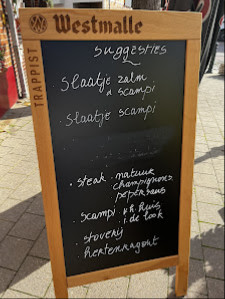 Westmalle
TRAPPIST
suggesties
slaatje zalm
& scampi
. slaatje scampi
. steak . natuur
champignons
pepersaus
. scampi . v/h huis
. de look
. stoverij
. hertenragout